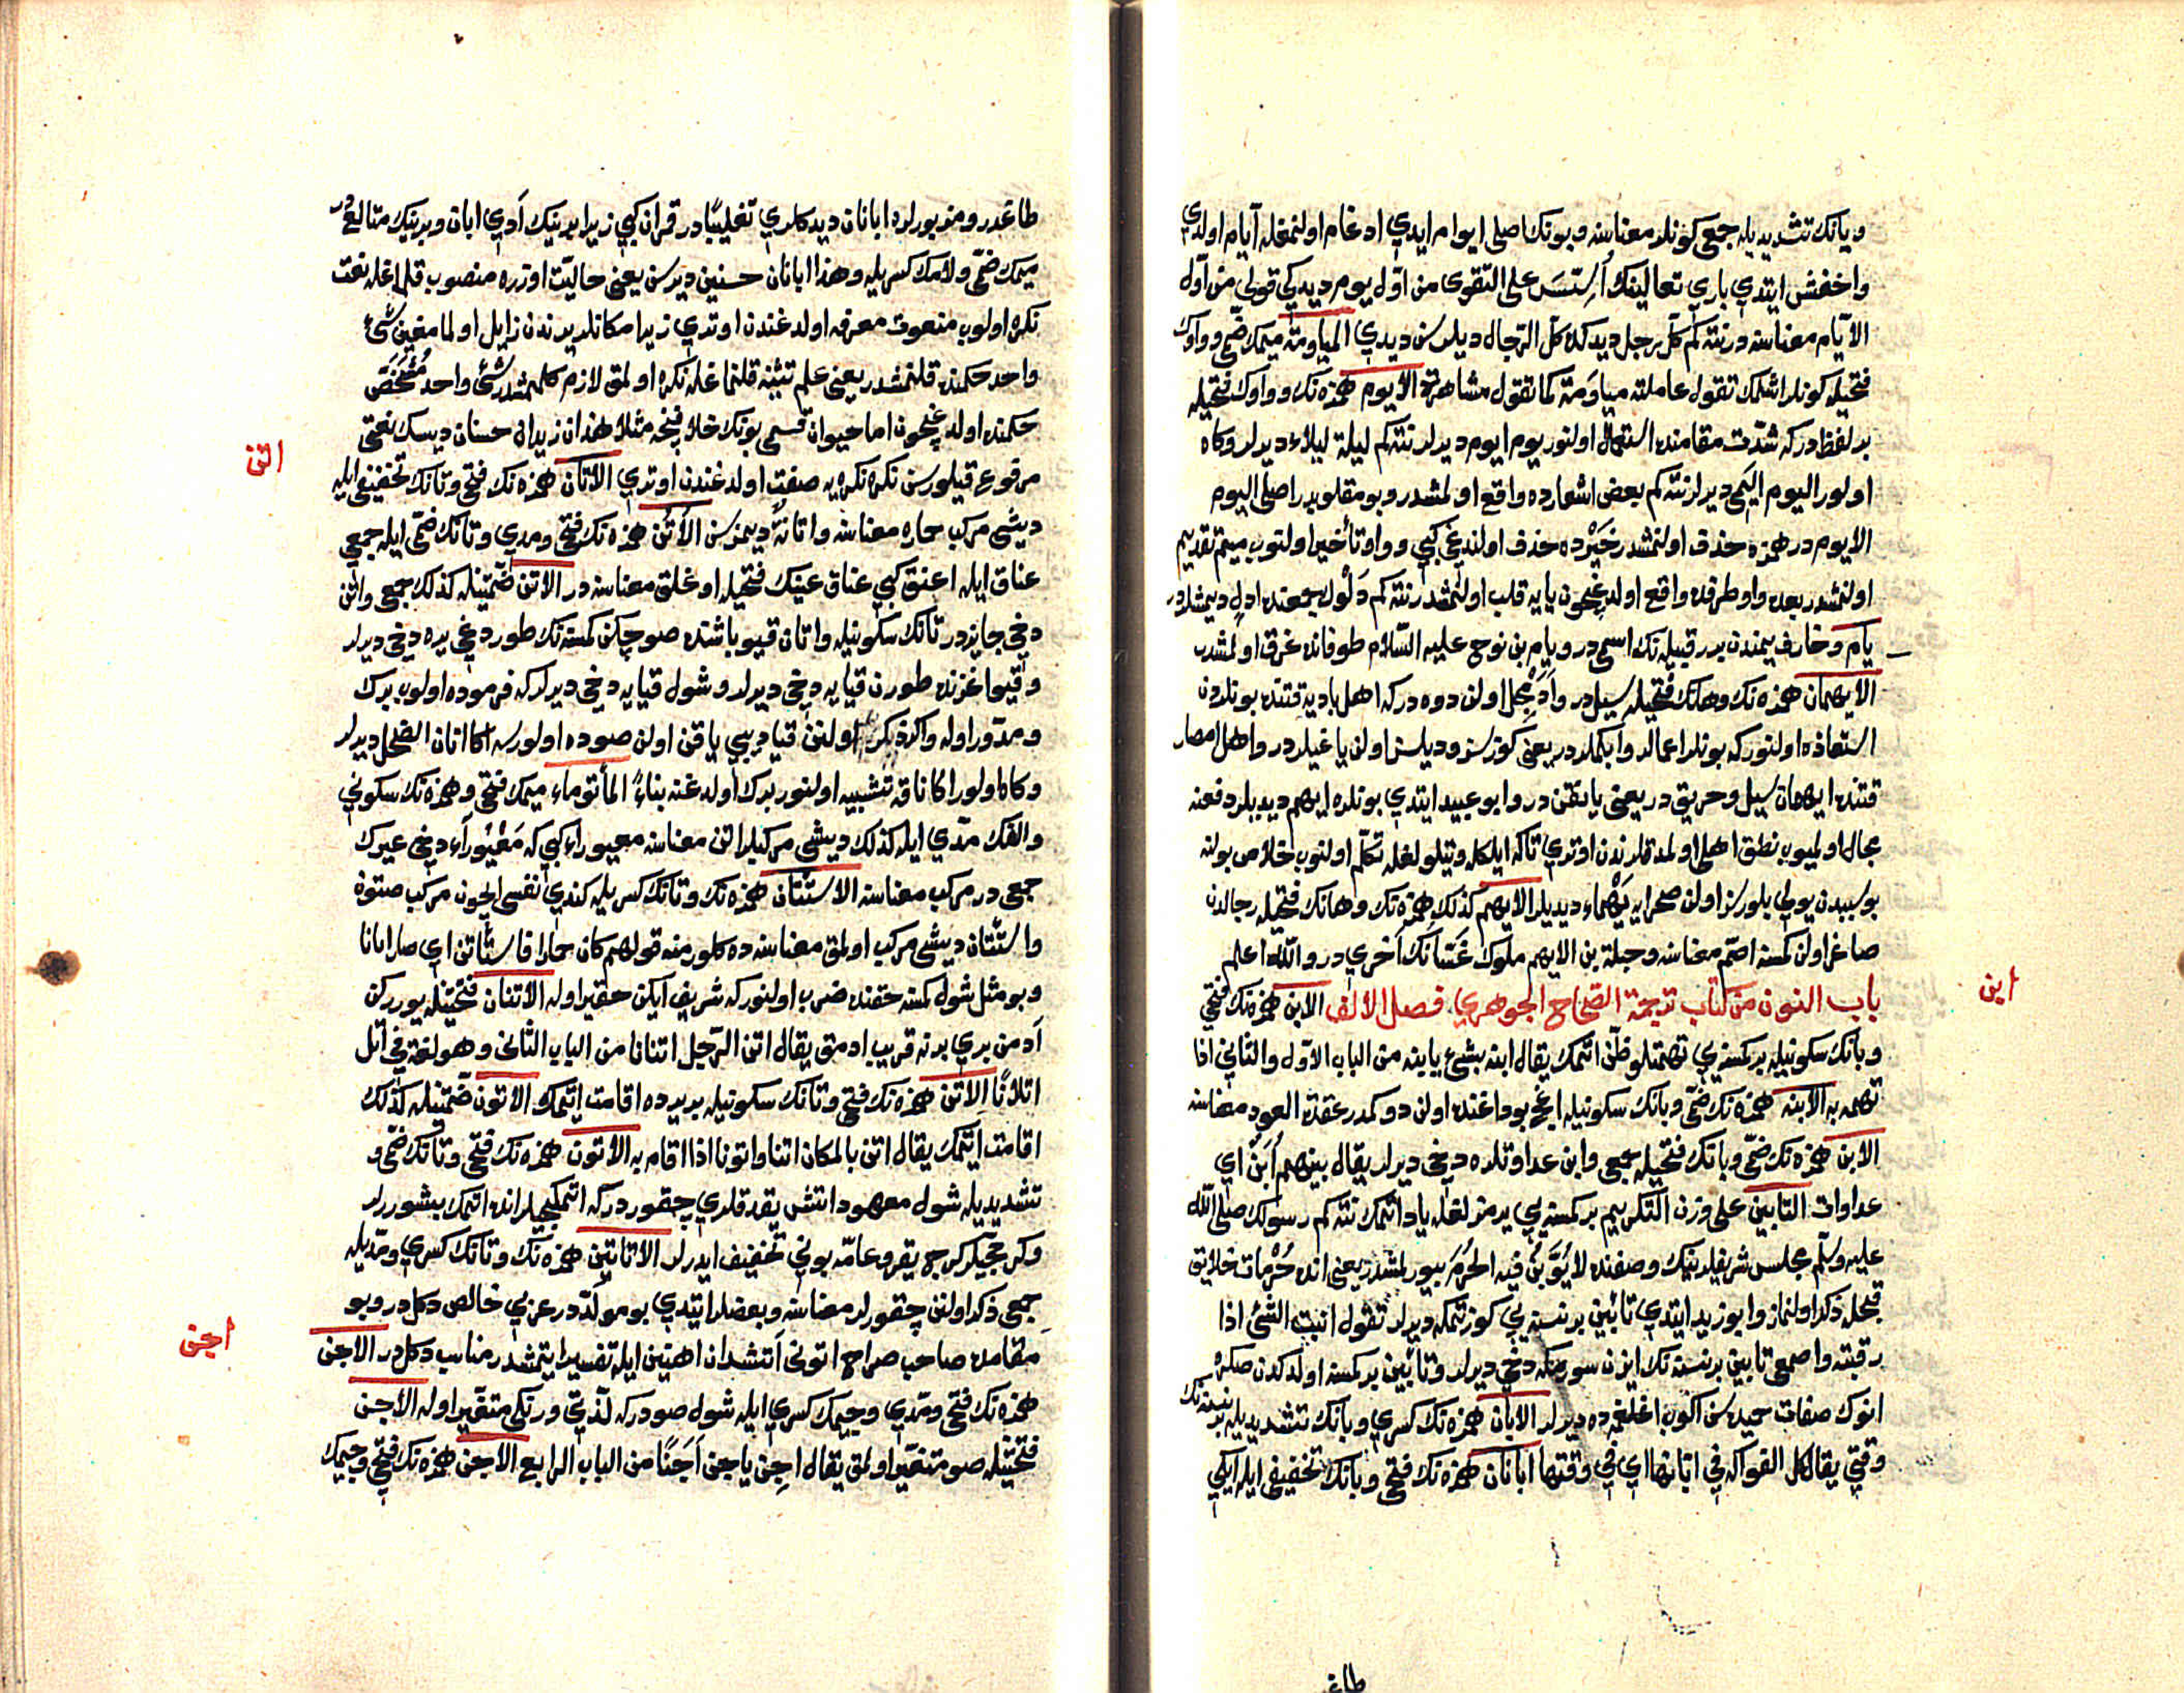 ويانك تشديديله جمعى كونلر معناسنه و بونك اصلى ايوام ايدي ادغام اولنمغله ايام اولدي
واخفش ايتدي باري تعالينك اُسِّسَ على التقوى من اوّل يوم ديدكي قولى من اوّل
الايّام معناسنه در نته كم كلّ رجل ديدكده كلّ الرّجال ديلرسن ديدي المياومة ميمك ضمّى و واوك
فتحيله كونلر اشلمك تقول عاملته مياوَمة كما تقول مشاهرة الايوم همزه نك و واوك فتحيله
بر لفظدر كه شدّت مقامنده استعمال اولنور يوم ايوم ديرلر نته كم ليلة ليلاء ديرلر وكاه
اولور اليوم اليَمى ديرلر نته كم بعض اشعارده واقع اولمشدر و بو مقلوبدر اصلى اليوم
الايوم در همزه حذف اولنمشدر خَيْر ده حذف اولندغى كبى و واو تأخير اولنوب ميم تقديم
اولنمشدر بعده واو طرفده واقع اولدغيچون يايه قلب اولنمشدر نته كم دَلْوك جمعنده ادلٍ ديمشلردر
يام وخارف يمندن بر قبيله نك اسميدر ويام بن نوح عليه السّلام طوفانده غرق اولمشدر
الايهمان همزه نك و هانك فتحيله سيلدر و آدمجل اولن دوه در كه اهل باديه قتنده بونلردن
استعاذه اولنور كه بونلر اعمالر و ابكملردر يعنى كوزسز و ديلسز اولن ياغيلردر و اهل امصار
قتنده ايهمان سيل و حريق در يعنى يانغن در و ابو عبيد ايتدي بونلره ايهم ديديلر دفعنه
مجال اولميوب نطق اهلى اولمدقلرندن اوتري تاكه ايلكله و تيلولغله تكلّم اولنوب خلاص بولنه
بو سببدن يولى بلورسز اولن صحرايه يَهْماء ديديلر الايهم كذلك همزه نك و هانك فتحيله رجالدن
صاغر اولن كمسنه اصمّ معناسنه و جبلة بن الايهم ملوك غسّانك آخري در والله اعلم
باب النون من كتاب ترجمة الصّحاح الجوهري فصل الالف الابن همزه نك فتحى
ابن
و بانك سكونيله بر كمسنه يي تهمتلو ظنّ ايتمك يقال ابنه بشيء يابنه من الباب الاوّل والثانى اذا
تهمه به الابنه همزه نك ضمّى و بانك سكونيله اغج بوداغنده اولن دوكمدر عقدة العود معناسنه
الابن همزه نك ضمّى و بانك فتحيله جمعى و ابن عداوتلره دخى ديرلر يقال بينهم اُبَنٌ اي
عداوات التابين على وزن التكريم بر كمسنه يي يرمزلغله ياد ايتمك نته كم رسولك صلى الله
عليه وسلم مجلس شريفلرينك وصفنده لا يُؤَبَّنُ فيه الحُرَم بيورلمشدر يعنى انده حُرُمات خلايق
قبحله ذكر اولنماز و ابو زيد ايتدي تأبين بر نسنه يي كوزتمكه ديرلر تقول ابّنت الشّئ اذا
رقبته و اصمعى تابين بر نسنه نك ايزن سورمكه دخى ديرلر و تأبين بر كمسنه اولدكدن صكره
انوك صفات حميده سن اكوب اغلمغه ده ديرلر الابان همزه نك كسري و بانك تشديديله بر نسنه نك
وقتى يقال كل الفواكه فى ابّانها اي فى وقتها ابانان همزه نك فتحى و بانك تخفيفى ايله ايكي
طاغ
طاغدر و مزبورلره ابانان ديدكلري تغليبًا در قمران كبى زيرا برينك اَدي ابان و برينك متالع در
ميمك ضمّى و لامك كسريله و هذا ابانان حسنين ديرسن يعنى حاليّت اوزره منصوب قلمغله نعت
نكره اولوب منعوت معرفه اولدغندن اوتري زيرا مكانلر يرندن زايل اولمامغين شئ
واحد حكمنده قلنمشدر يعنى علم تثنيه قلنمغله نكره اولمق لازم كلمشدر شئ واحد مشخّص
حكمنده اولدغيچون اما حيوان قسمى بونك خلافنجه مثلا هذان زيدان حسنان ديسك نعتى
مرفوع قيلورسن نكره نكره يه صفت اولدغندن اوتري الاتان همزه نك فتحى و تانك تخفيفى ايله
اتن
ديشى مركب حماره معناسنه و اتانةٌ ديمزسن الاُتُن همزه نك فتحى و مدي و تانك ضمّى ايله جمعى
عناق ايله اعنق كبى عناق عينك فتحيله اوغلق معناسنه در الاتن ضمّتينله كذلك جمعى و اتن
دخى جايزدر تانك سكونيله و اتان قيو باشنده صو چكن كمسنه نك طوردغى يره دخى ديرلر
و قيو اغزنده طورن قيايه دخى ديرلر و شول قيايه دخى ديرلر كه فرموده اولوب برك
و مدوّر اوله و اكر ذكر اولنن قيا ديبى ياقن اولن صوده اولورسه اكا اتان الضّحل ديرلر
و كاه اولور اكا ناقه تشبيه اولنور برك اولدغنه بناءً المأتوماء ميمك فتحى و همزه نك سكونى
و الفك مدّي ايله كذلك ديشى مركبلر اتن معناسنه معيوراء كبى كه مَعْيُورَاء دخى عيرك
جمعى در مركب معناسنه الاستئتان همزه نك و تانك كسريله كندي نفسى ايچون مركب صتون
و استئتان ديشى مركب اولمق معناسنه ده كلور منه قولهم كان حمارا فاستأتن اي صار اتانا
و بو مثل شول كمسنه حقنده ضرب اولنور كه شريف ايكن حقير اوله الاتنان فتحتينله يورركن
آدمن بري برينه قريب ادمق يقال اتن الرّجل اتنانا من الباب الثّانى و هو لغة فى اتل
اتلانًا الاتن همزه نك فتحى و تانك سكونيله بر يرده اقامت ايتمك الاتون ضمّتينله كذلك
اقامت ايتمك يقال اتن بالمكان اتنا و اتونا اذا اقام به الاتّون همزه نك فتحى و تانك ضمّى و
تشديديله شول معهود اتش يقدقلري چقوردر كه اتمكجيلر انده اتمك بشوررلر
و كرجيلر كرج يقر و عامّه بونى تخفيف ايدرلر الاتاتين همزه نك و تانك كسري و مدّيله
جمعى ذكر اولنن چقورلر معناسنه و بعضلر ايتدي بو مولّددر عربى خالص دكلدر و بو
مقامده صاحب صراح اتونى آتشدان اهنين ايله تفسير ايتمشدر مناسب دكلدر الآجن
اجن
همزه نك فتحى و مدّي و جيمك كسري ايله شول صودر كه لذّتى و رنكى متغيّر اوله الاجن
فتحتينله صو متغيّر اولمق يقال اجِن ياجن اَجَنًا من الباب الرابع الاجن همزه نك فتحى و جيمك